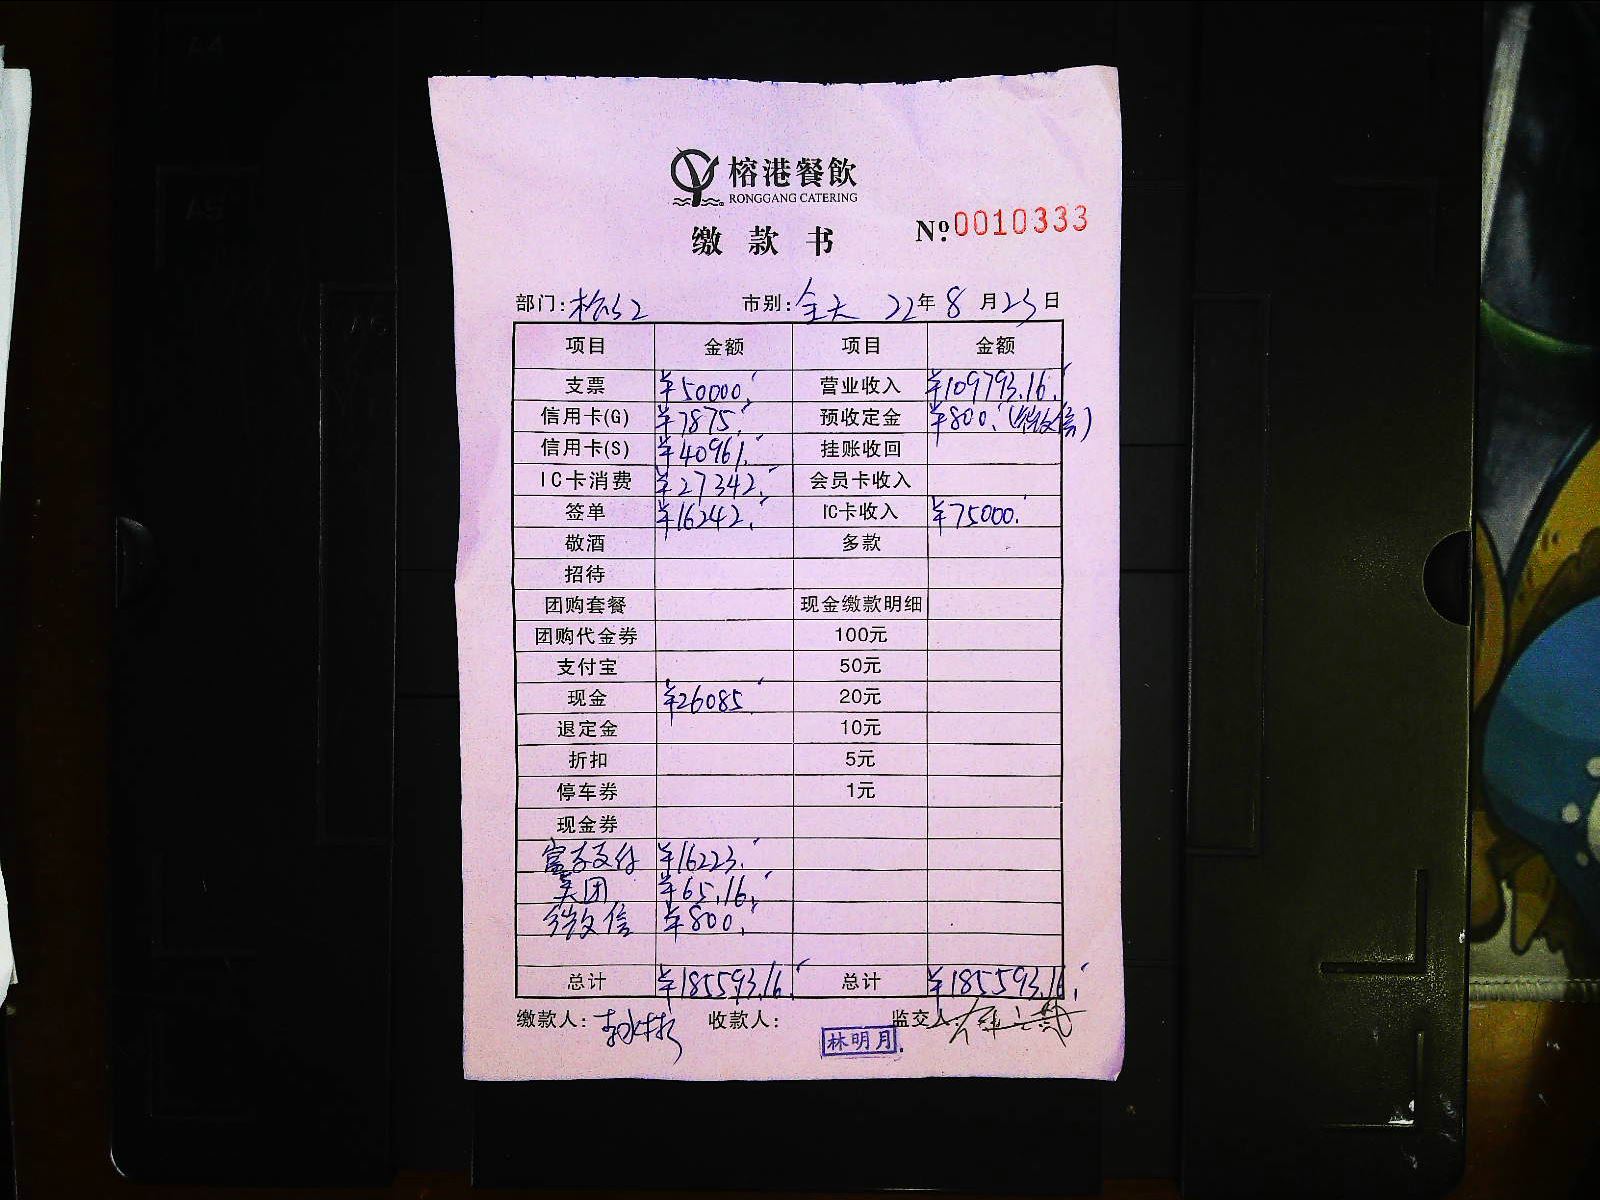 A4
A5
榕港餐飲
RONGGANG CATERING
缴款书
№ 0010333
部门: 松江 市别: 全天 22年 8月 23日
项目 金额 项目 金额
支票 ¥50000. 营业收入 ¥109793.16.
信用卡(G) ¥7875. 预收定金 ¥800. (微信)
信用卡(S) ¥40961. 挂账收回
IC卡消费 ¥27342. 会员卡收入
签单 ¥16242. IC卡收入 ¥75000.
敬酒 多款
招待
团购套餐 现金缴款明细
团购代金券 100元
支付宝 50元
现金 ¥26085 20元
退定金 10元
折扣 5元
停车券 1元
现金券
富友支付 ¥16223.
美团 ¥65.16.
微信 ¥800.
总计 ¥185593.16. 总计 ¥185593.16.
缴款人: 收款人: 监交人:
林明月